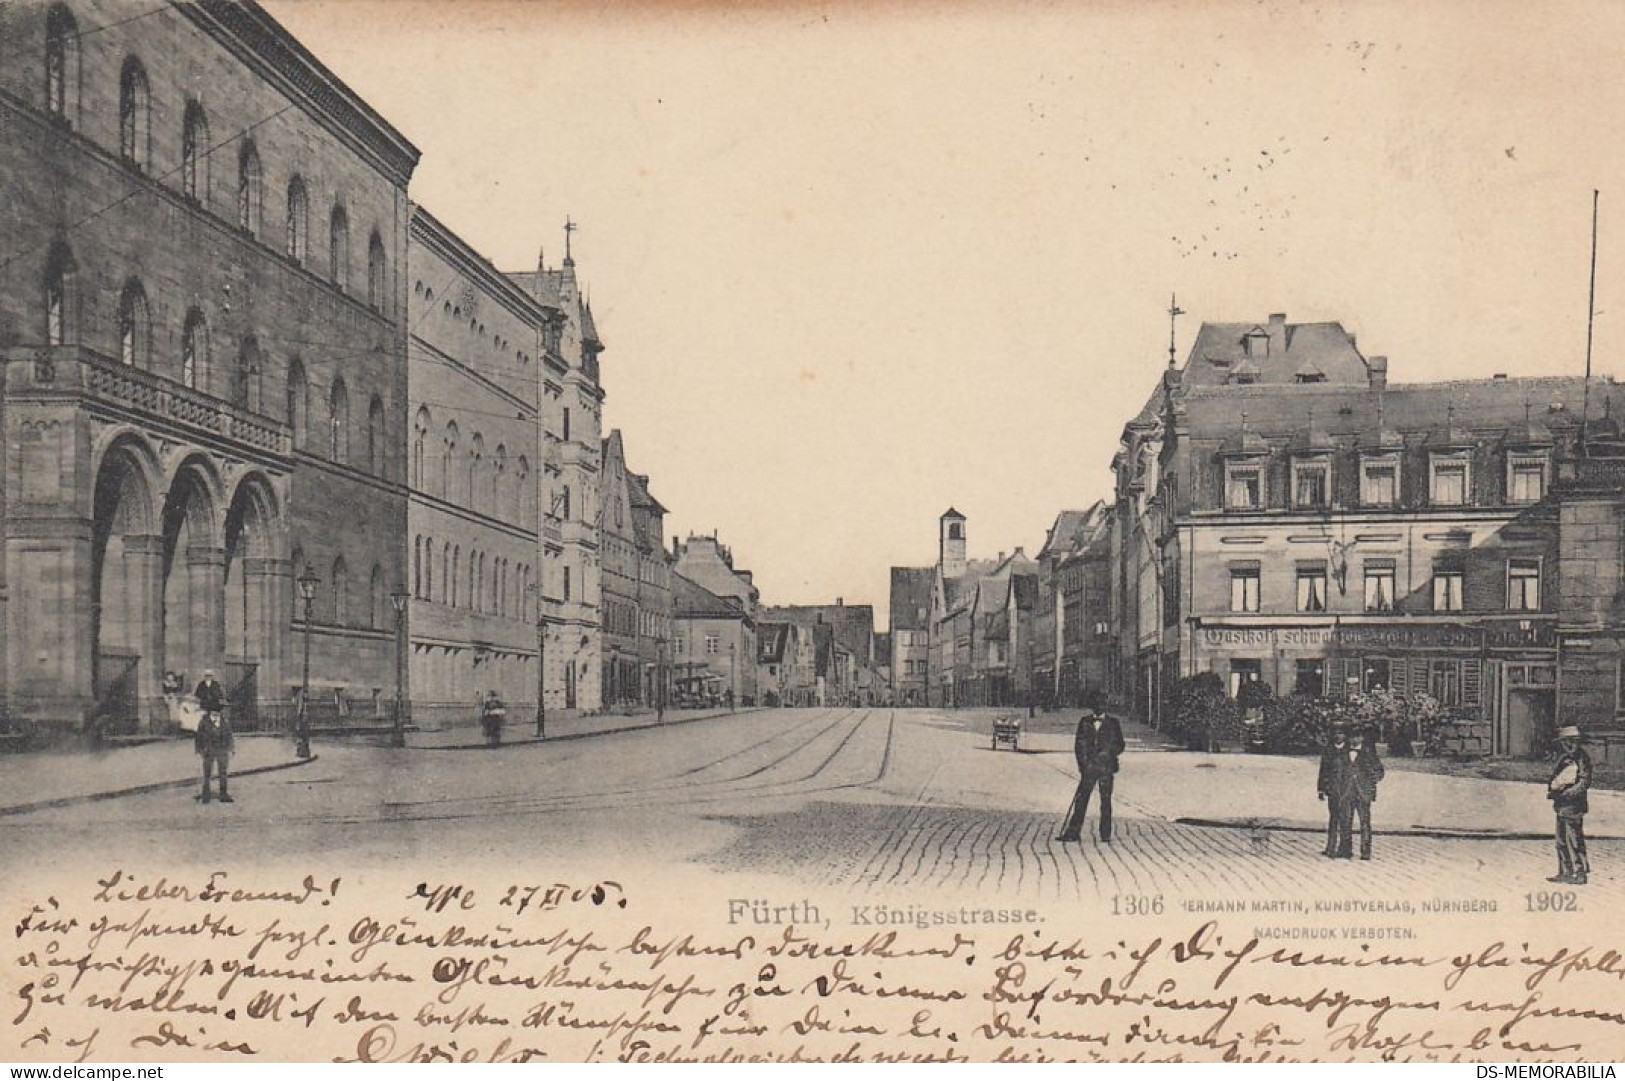 Gasthof z. schwarzen
Lieber Freund! 27 XI 05.
Fürth, Königsstrasse. 1306 HERMANN MARTIN, KUNSTVERLAG, NÜRNBERG 1902.
NACHDRUCK VERBOTEN.
Für gesandte herzl. Glückwünsche bestens dankend, bitte ich Dich meine gleichfalls
aufrichtigst gemeinten Glückwünsche zu Deiner Beförderung entgegen nehmen
zu wollen. Mit den besten Wünschen für Dein u. Deiner Familie Wohl bin
ich Dein
delcampe.net
DS-MEMORABILIA